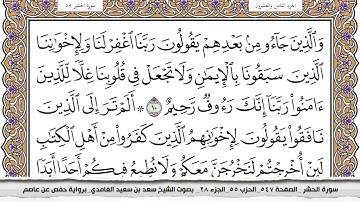 الجزء الثامن والعشرون
سورة الحشر ٥٩
وَٱلَّذِينَ جَآءُو مِنۢ بَعْدِهِمْ يَقُولُونَ رَبَّنَا ٱغْفِرْ لَنَا وَلِإِخْوَٰنِنَا
ٱلَّذِينَ سَبَقُونَا بِٱلْإِيمَٰنِ وَلَا تَجْعَلْ فِى قُلُوبِنَا غِلًّا لِّلَّذِينَ
ءَامَنُوا۟ رَبَّنَآ إِنَّكَ رَءُوفٌ رَّحِيمٌ ١٠ ۞ أَلَمْ تَرَ إِلَى ٱلَّذِينَ
نَافَقُوا۟ يَقُولُونَ لِإِخْوَٰنِهِمُ ٱلَّذِينَ كَفَرُوا۟ مِنْ أَهْلِ ٱلْكِتَٰبِ
لَئِنْ أُخْرِجْتُمْ لَنَخْرُجَنَّ مَعَكُمْ وَلَا نُطِيعُ فِيكُمْ أَحَدًا أَبَدًا
سورة الحشر _الصفحة ٥٤٧_الحزب ٥٥_الجزء ٢٨_ بصوت الشيخ سعد بن سعيد الغامدي_برواية حفص عن عاصم